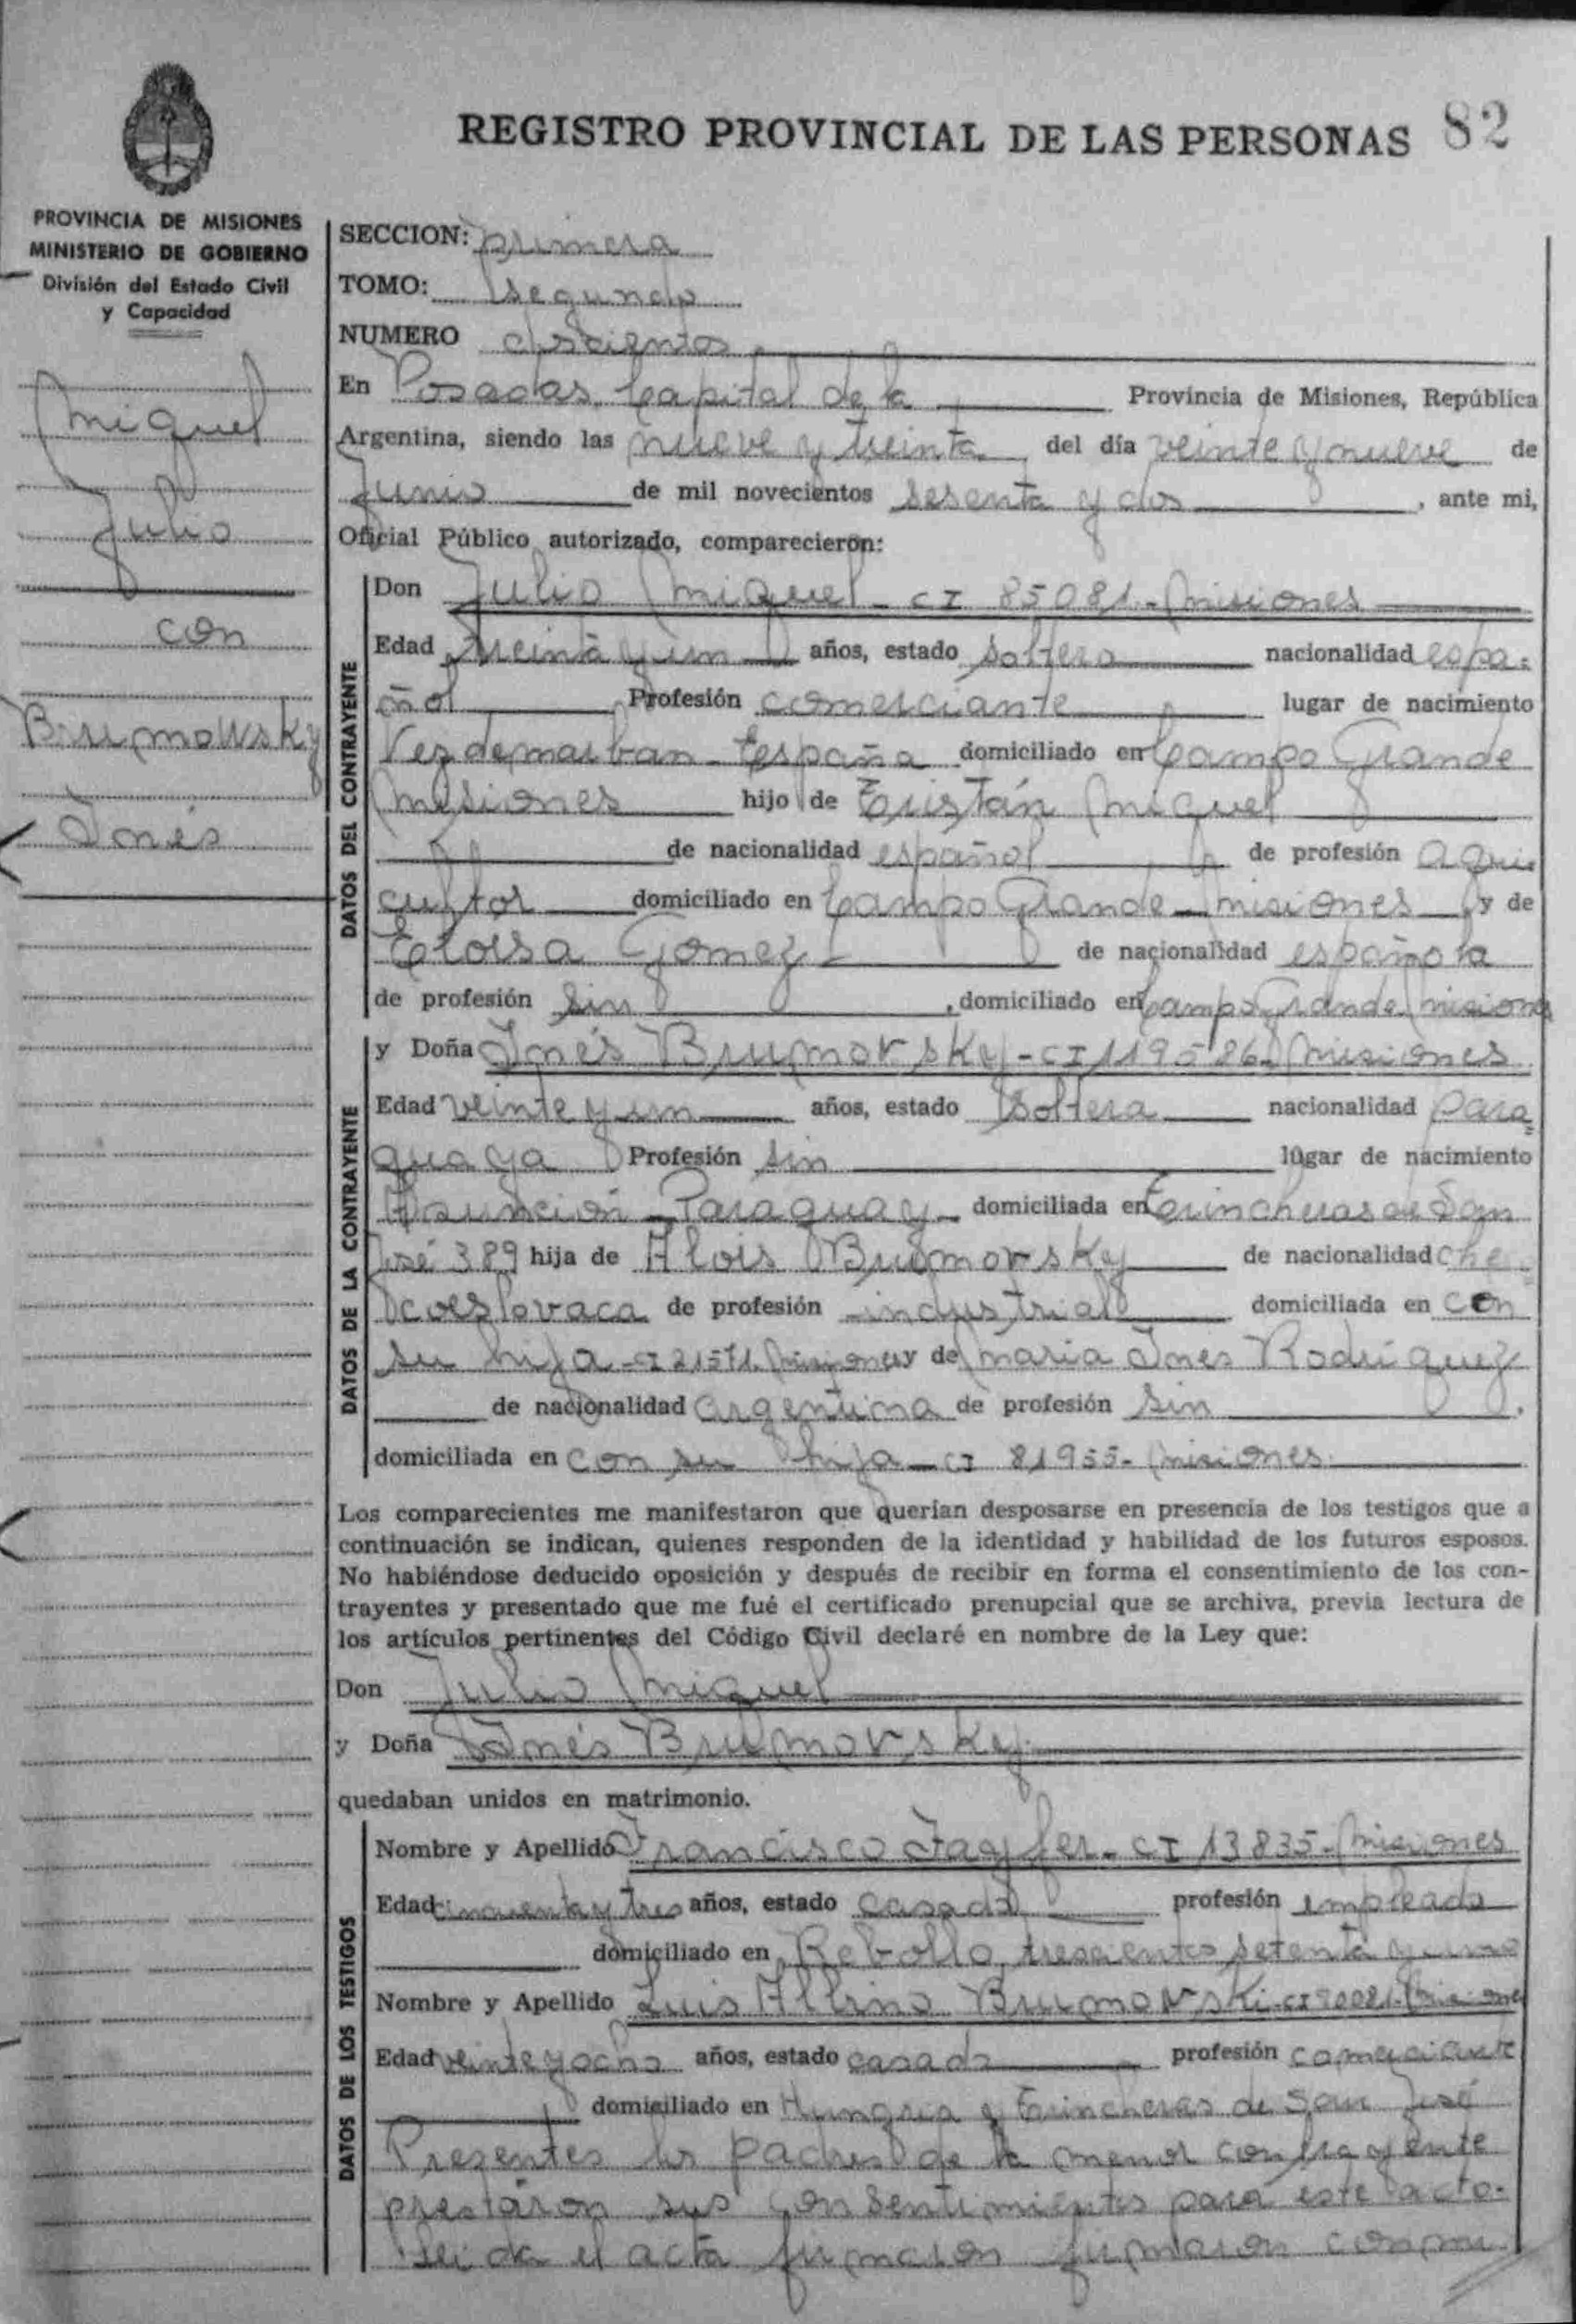 REGISTRO PROVINCIAL DE LAS PERSONAS 82
PROVINCIA DE MISIONES
MINISTERIO DE GOBIERNO
División del Estado Civil
y Capacidad
Miguel
Julio
con
Brumowsky
Inés
SECCION: primera
TOMO: segundo
NUMERO doscientos
En Posadas Capital de la Provincia de Misiones, República
Argentina, siendo las nueve y treinta del día veinte y nueve de
Junio de mil novecientos sesenta y dos, ante mi,
Oficial Público autorizado, comparecieron:
DATOS DEL CONTRAYENTE
Don Julio Miguel - CI 85081 - Misiones
Edad treinta y un años, estado soltero nacionalidad espa-
ñol Profesión comerciante lugar de nacimiento
Vezdemarban - España domiciliado en Campo Grande
Misiones hijo de Tristán Miguel
de nacionalidad español de profesión agri
cultor domiciliado en Campo Grande - Misiones y de
Eloisa Gomez de nacionalidad española
de profesión sin, domiciliado en Campo Grande Misiones
DATOS DE LA CONTRAYENTE
y Doña Inés Brumovsky - CI 119586 - Misiones
Edad veinte y un años, estado soltera nacionalidad para=
guaya Profesión sin lugar de nacimiento
Asunción - Paraguay - domiciliada en Trincheras de San
José 389 hija de Alois Brumovsky de nacionalidad che
coeslovaca de profesión industrial domiciliada en con
su hija - CI 21571 Misiones y de Maria Ines Rodriguez
de nacionalidad argentina de profesión sin.
domiciliada en con su hija - CI 81955 - Misiones
Los comparecientes me manifestaron que querían desposarse en presencia de los testigos que a
continuación se indican, quienes responden de la identidad y habilidad de los futuros esposos.
No habiéndose deducido oposición y después de recibir en forma el consentimiento de los con-
trayentes y presentado que me fué el certificado prenupcial que se archiva, previa lectura de
los artículos pertinentes del Código Civil declaré en nombre de la Ley que:
Don Julio Miguel
y Doña Inés Brumovsky
quedaban unidos en matrimonio.
DATOS DE LOS TESTIGOS
Nombre y Apellido Francisco - CI 13835 - Misiones
Edad cincuenta y tres años, estado casado profesión empleado
domiciliado en Rebollo trescientos setenta y uno
Nombre y Apellido Luis Brumovski - CI Misiones
Edad veinte y ocho años, estado casado profesión comerciante
domiciliado en Hungria y Trincheras de San José
Presentes los padres de la menor contrayente
prestaron sus consentimientos para este acto.
Leida el acta firmaron firmaron conmi